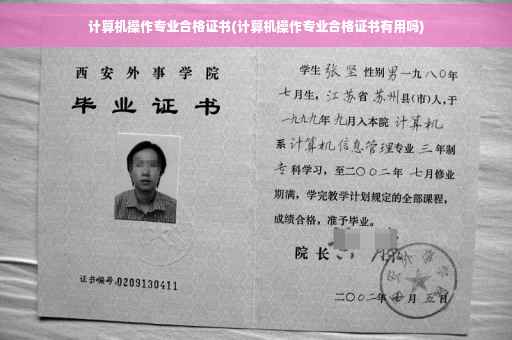 计算机操作专业合格证书(计算机操作专业合格证书有用吗)
西安外事学院
毕业证书
证书编号:0209130411
学生张坚性别男一九八〇年
七月生,江苏省苏州县(市)人,于
一九九九年九月入本院计算机
系计算机信息管理专业三年制
专科学习,至二〇〇二年七月修业
期满,学完教学计划规定的全部课程,
成绩合格,准予毕业。
院长
二〇〇二年 月五日